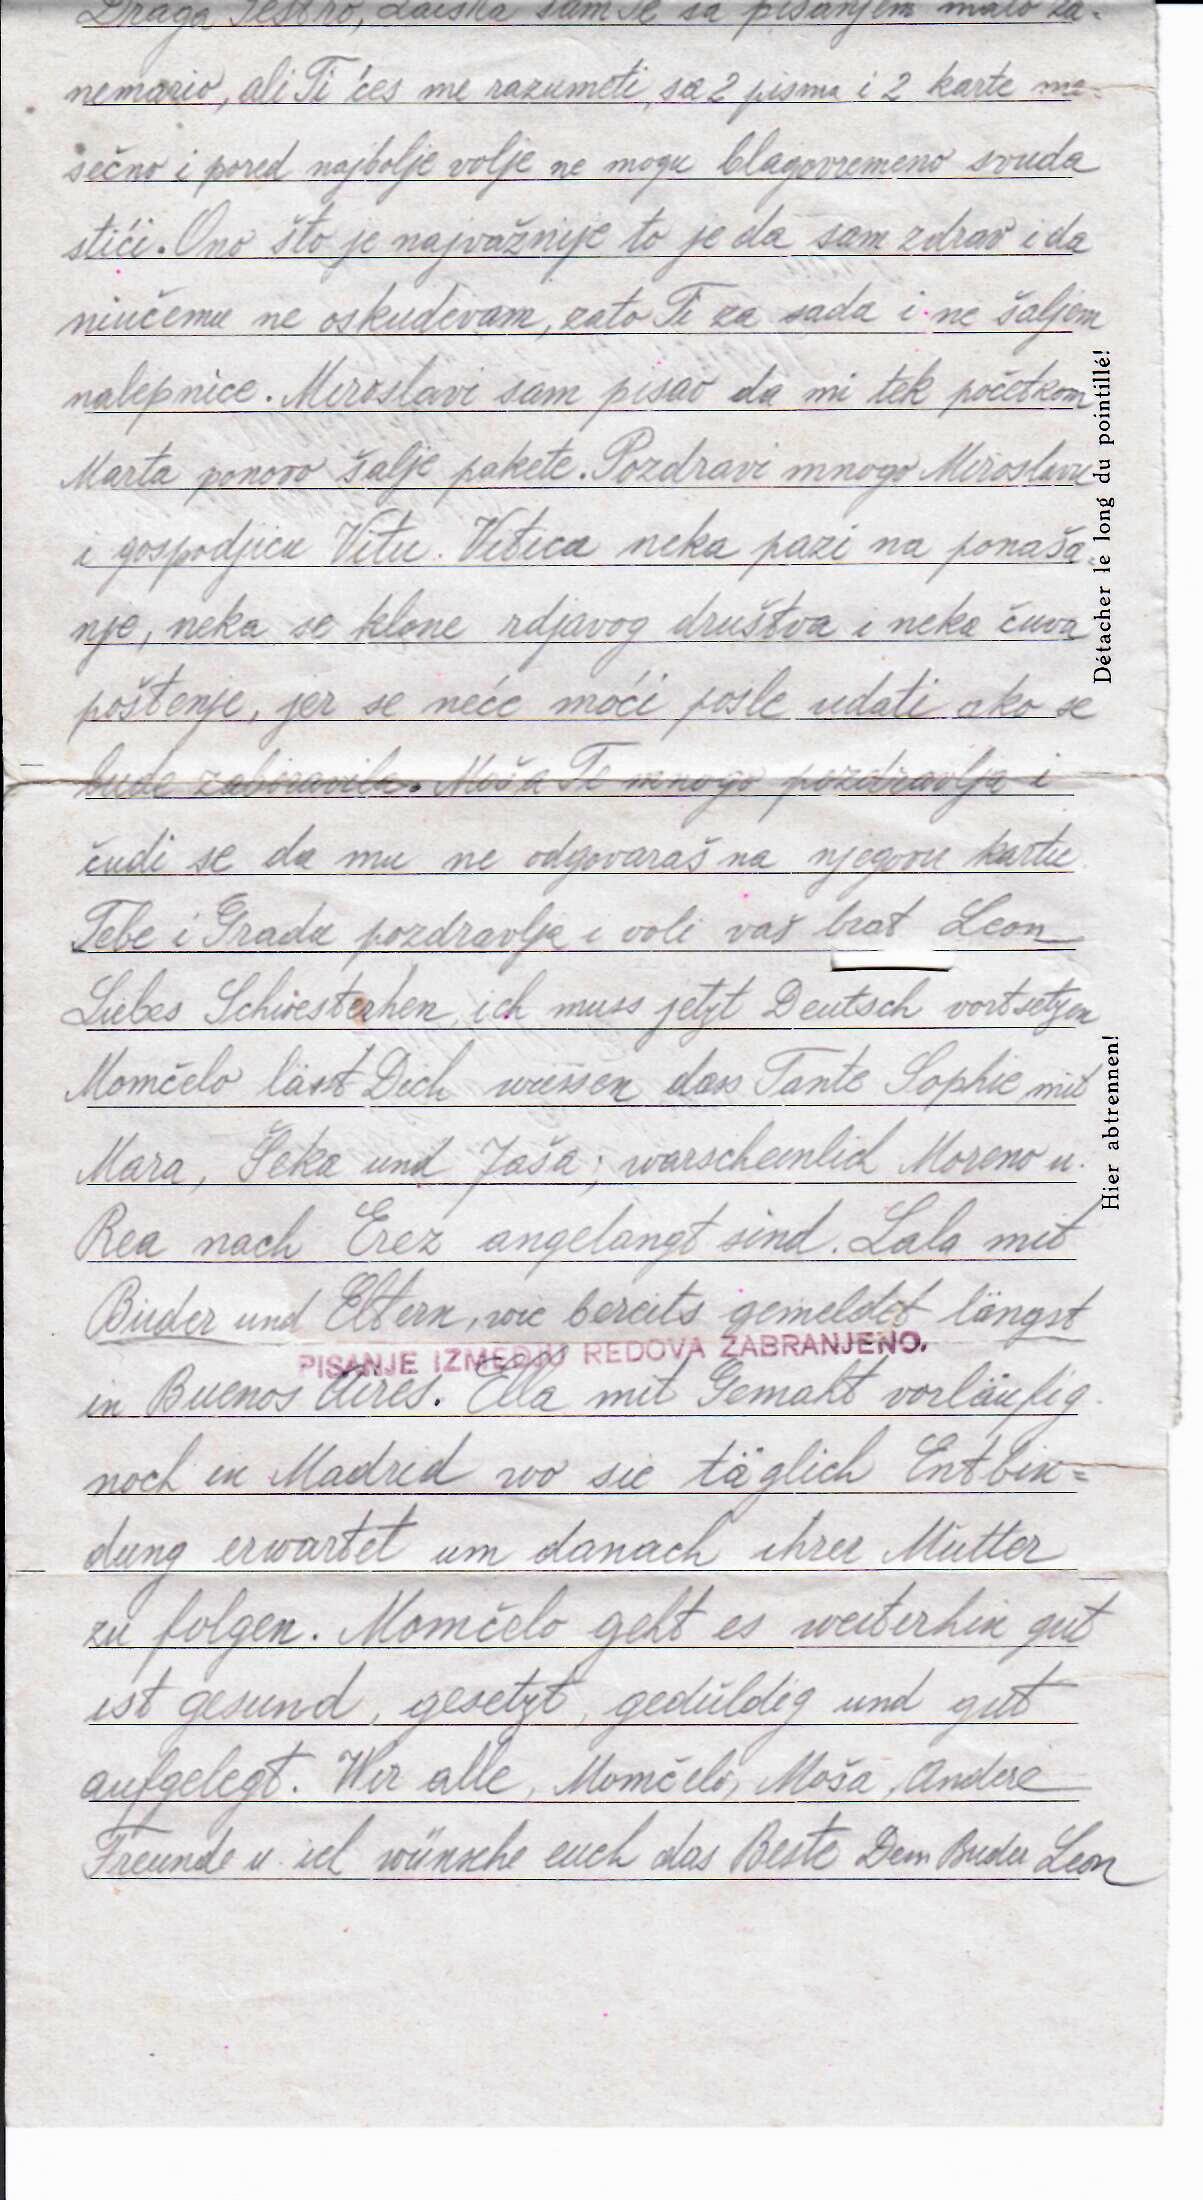 Draga Sestro, zaista sam se sa pisanjem malo za-
nemario, ali Ti ćes me razumeti, sa 2 pisma i 2 karte me-
sečno i pored najbolje volje ne mogu blagovremeno svuda
stići. Ono što je najvažnije to je da sam zdrav i da
niučemu ne oskudevam, zato Ti za sada i ne šaljem
nalepnice. Miroslavi sam pisao da mi tek početkom
Marta ponovo šalje pakete. Pozdravi mnogo Miroslavu
i gospodjicu Vitu. Vitica neka pazi na ponaša-
nje, neka se klone rdjavog društva i neka čuva
poštenje, jer se neće moći posle udati ako se
bude zaboravila. Moša Te mnogo pozdravlja i
čudi se da mu ne odgovaraš na njegovu kartu.
Tebe i Gradu pozdravlja i voli vaš brat Leon
Liebes Schwesterhen, ich muss jetzt Deutsch vortsetzen
Momčelo lässt Dich wiessen dass Tante Sophie mit
Mara, Seka und Jaša; warscheinlich Moreno u.
Rea nach Erez angelangt sind. Lala mit
Buder und Eltern, wie bereits gemeldet längst
PISANJE IZMEDJU REDOVA ZABRANJENO.
in Buenos Aires. Ella mit Gemahl vorläufig
noch in Madrid wo sie täglich Entbin=
dung erwartet um danach ihrer Mutter
zu folgen. Momčelo geht es weiterhin gut
ist gesund, gesetzt, geduldig und gut
aufgelegt. Wir alle, Momčelo, Moša, Andere
Freunde u. ich wünsche euch das Beste Dein Buder Leon
Détacher le long du pointillé!
Hier abtrennen!